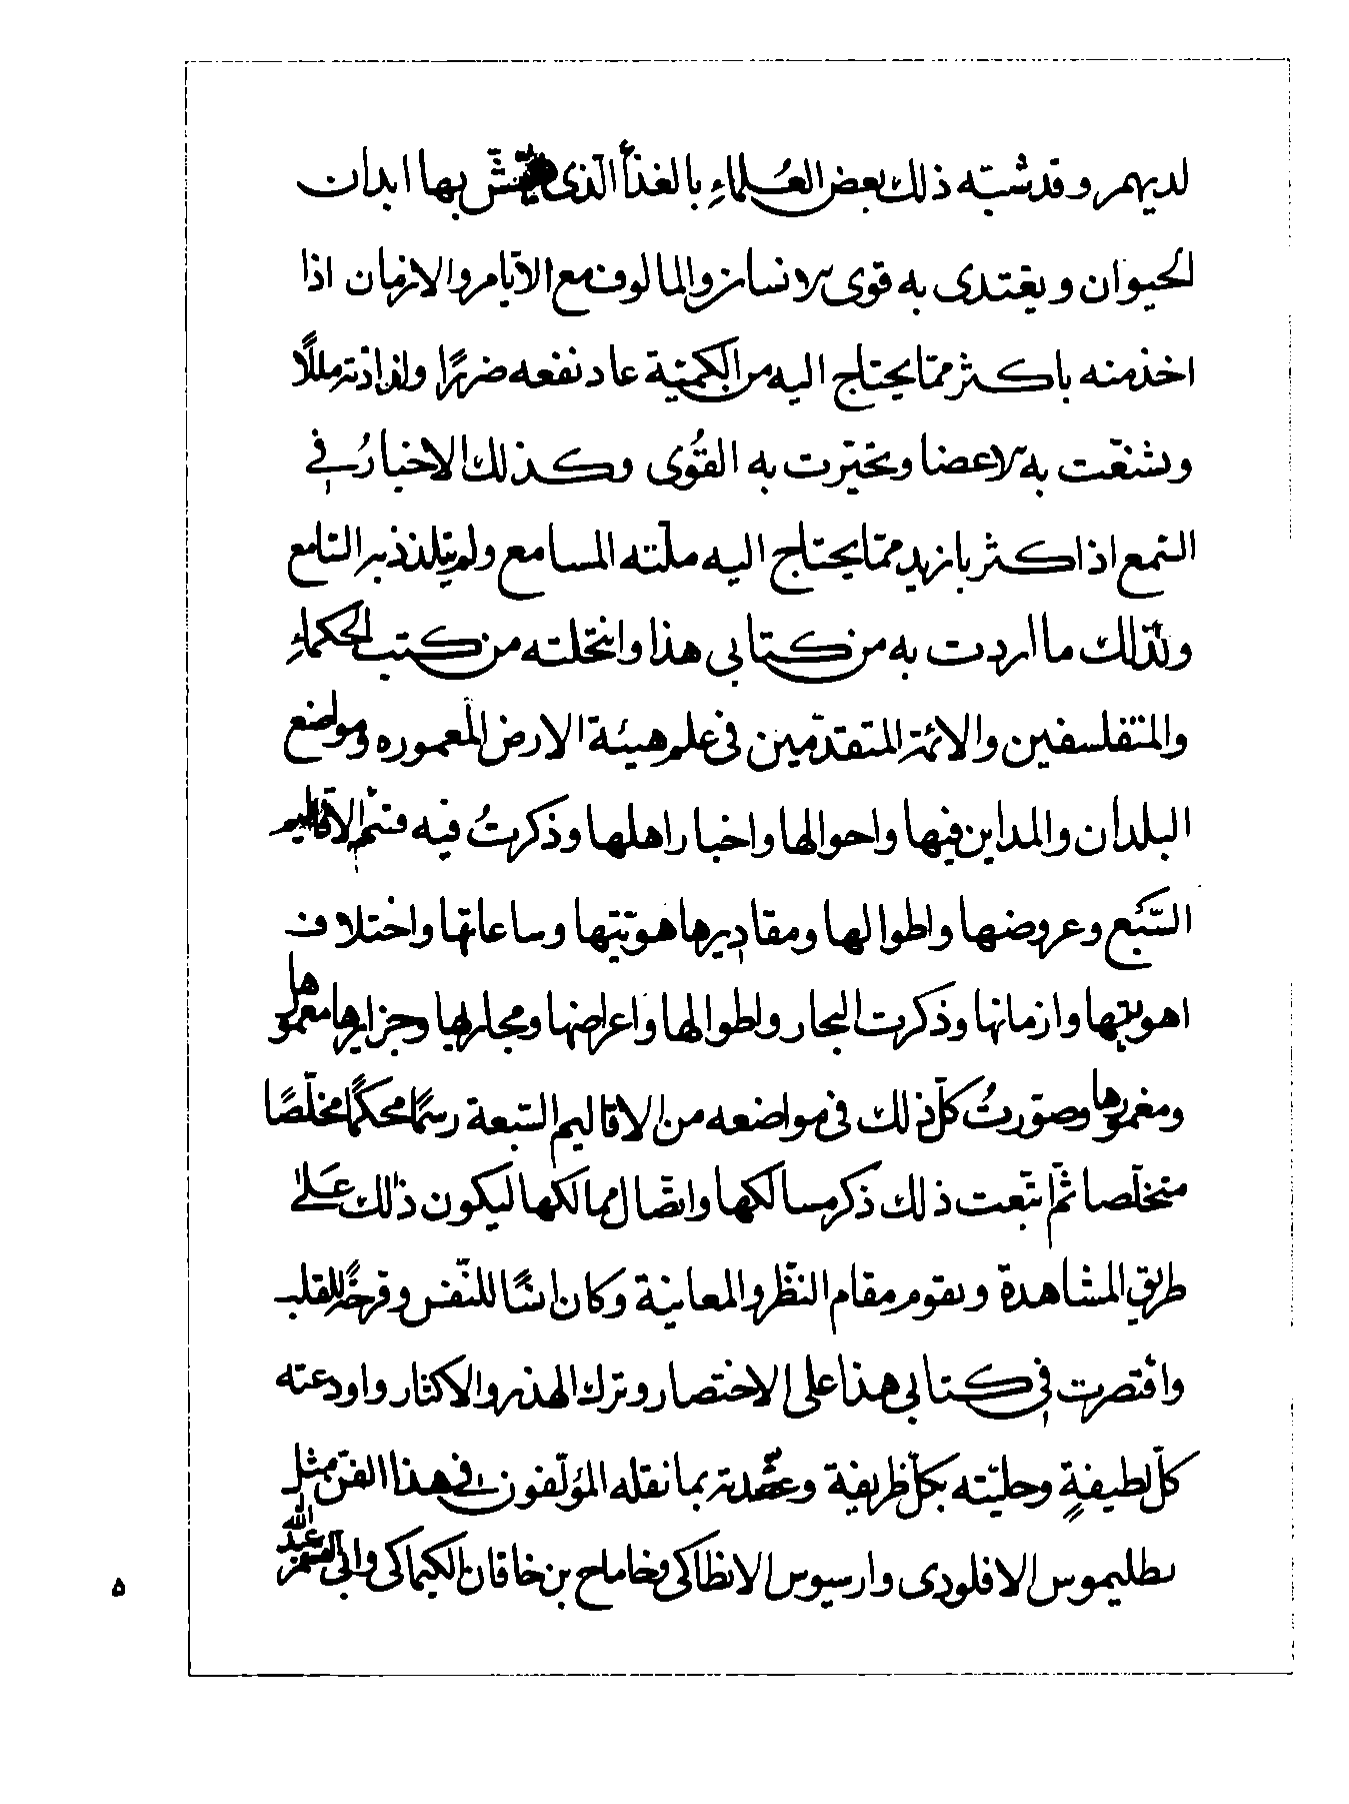 لديهم وقد شبّه ذلك بعض العُلماءِ بالغذآ الّذى بها ابدان
الحيوان ويغتدى به قوى الانسان والمالوف مع الايّام والازمان اذا
اخذ منه باكثر ممّا يحتاج اليه من الكميّة عاد نفعه ضررًا مللًا
وتشنّعت به الاعضا وتخيّرت به القُوى وكذلك الاخبارُ فى
السّمع اذا اكثر بازيد ممّا يحتاج اليه ملّته المسامع ولم يتلذذ به السّامع
ولذلك ما اردت به من كتابى هذا وانتخلته من كتب الحكماءِ
والمتفلسفين والائمة المتقدّمين فى علم هيئة الارض المعموره ومواضع
البلدان والمداين فيها واحوالها واخبار اهلها وذكرتُ فيه قسم الاقاليم
السّبع وعروضها واطوالها ومقاديرها هويّتها وساعاتها واختلاف
اهويتها وازمانها وذكرت البحار واطوالها واعراضها ومجاريها وجزايرها معمورها
ومغمورها وصوّرتُ كلّ ذلك فى مواضعه من الاقاليم السّبعة رسمًا محكمًا مخلّصًا
متخلّصا ثمّ اتبّعت ذلك ذكر مسالكها واتصّال ممالكها ليكون ذلك عَلى
طريق المشاهدة ويقوم مقام النظّر والمعاينة وكان انسًا للنّفس وفرحةً للقلب
واقتصرت فى كتابى هذا على الاختصار وترك الهذر والاكثار واودعته
كلّ لطيفةٍ وحليّته بكلّ ظريفة بما نقله المؤلّفون فى هذا الفنّ مثل
بطليموس الاقلودى وارسيوس الانطاكى وخاماح بن خاقان الكيماكى وابى القسم عبد الله
٥